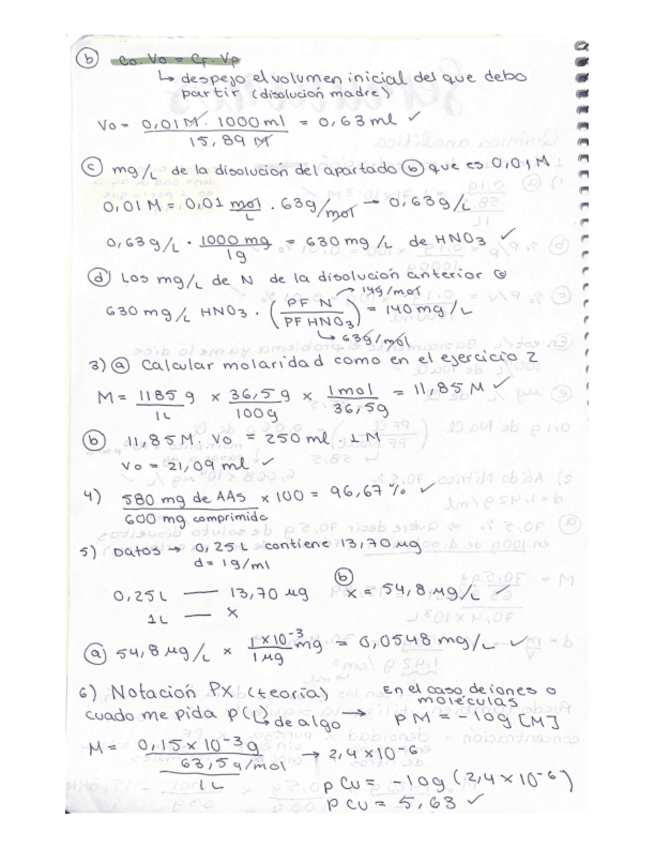 (b) Co. Vo = Cf. Vf
↳ despejo el volumen inicial del que debo
partir (disolución madre)
Vo = 0,01 M. 1000 ml / 15,89 M = 0,63 ml ✓
(c) mg/L de la disolución del apartado (b) que es 0,01 M
0,01 M = 0,01 mol/L . 63 g/mol → 0,63 g/L
0,63 g/L . 1000 mg / 1g = 630 mg/L de HNO3 ✓
(d) Los mg/L de N de la disolución anterior
→ 14g/mol
630 mg/L HNO3 . (PF N / PF HNO3) = 140 mg/L
↳ 63g/mol
3) (a) Calcular molaridad como en el ejercicio 2
M = 1185 g / 1L x 36,5 g / 100g x 1mol / 36,5g = 11,85 M ✓
(b) 11,85 M. Vo = 250 ml . 1 M
Vo = 21,09 ml ✓
4) 580 mg de AAs / 600 mg comprimido x 100 = 96,67 % ✓
5) Datos → 0,25 L contiene 13,70 µg
d = 1g/ml
0,25 L — 13,70 µg
1L — x
(b) x = 54,8 µg/L ✓
(a) 54,8 µg/L x 1x10-3 mg / 1 µg = 0,0548 mg/L ✓
6) Notación Px (teoría)
cuado me pida p( )
↳ de algo →
En el caso de iones o
moléculas
pM = -log [M]
M = 0,15 x 10-3 g / 63,5 g/mol / 1L → 2,4 x 10-6
p Cu = -log (2,4 x 10-6)
p Cu = 5,63 ✓